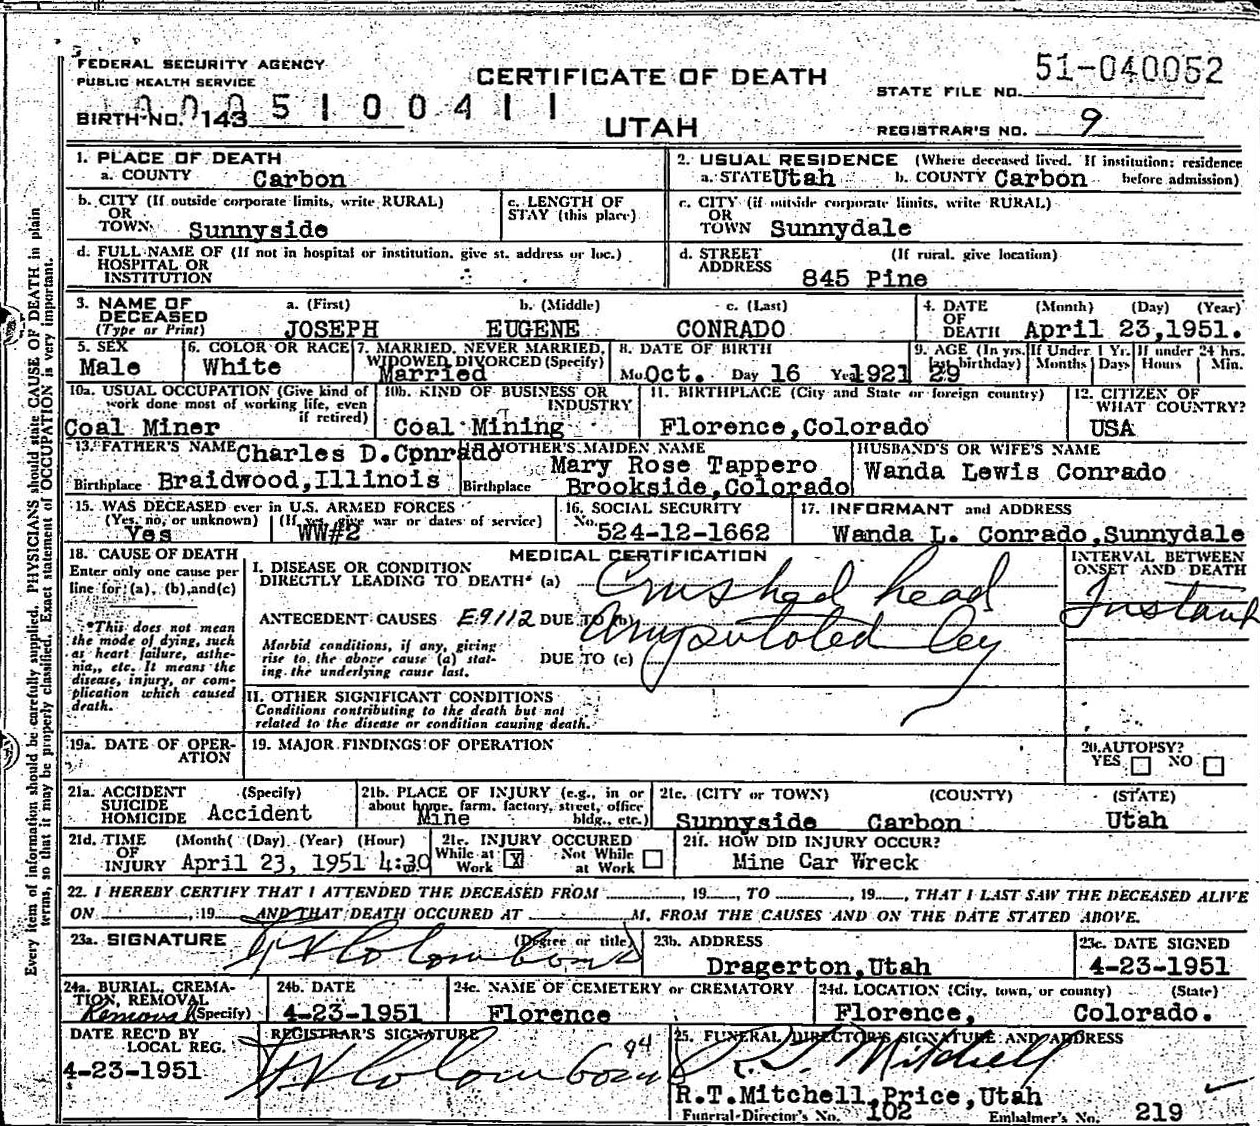 FEDERAL SECURITY AGENCY
PUBLIC HEALTH SERVICE
CERTIFICATE OF DEATH
UTAH
51-040052
STATE FILE NO.
BIRTH NO. 143
5 1 0 0 4 1 1
REGISTRAR'S NO. 9
1. PLACE OF DEATH
a. COUNTY Carbon
2. USUAL RESIDENCE (Where deceased lived. If institution: residence before admission)
a. STATE Utah b. COUNTY Carbon
b. CITY (If outside corporate limits, write RURAL) OR TOWN Sunnyside
c. LENGTH OF STAY (this place)
c. CITY (if outside corporate limits, write RURAL) OR TOWN Sunnydale
d. FULL NAME OF (If not in hospital or institution, give st. address or loc.) HOSPITAL OR INSTITUTION
d. STREET ADDRESS (If rural, give location)
845 Pine
3. NAME OF DECEASED (Type or Print)
a. (First) b. (Middle) c. (Last)
JOSEPH EUGENE CONRADO
4. DATE OF DEATH (Month) (Day) (Year)
April 23,1951.
5. SEX
Male
6. COLOR OR RACE
White
7. MARRIED, NEVER MARRIED, WIDOWED, DIVORCED (Specify)
Married
8. DATE OF BIRTH
Mo Oct. Day 16 Yr 1921
9. AGE (In yrs. last birthday) 29
If Under 1 Yr. Months Days
If under 24 hrs. Hours Min.
10a. USUAL OCCUPATION (Give kind of work done most of working life, even if retired)
Coal Miner
10b. KIND OF BUSINESS OR INDUSTRY
Coal Mining
11. BIRTHPLACE (City and State or foreign country)
Florence,Colorado
12. CITIZEN OF WHAT COUNTRY?
USA
13. FATHER'S NAME Charles D.Cpnrado
Birthplace Braidwood,Illinois
MOTHER'S MAIDEN NAME
Mary Rose Tappero
Birthplace Brookside,Colorado
HUSBAND'S OR WIFE'S NAME
Wanda Lewis Conrado
15. WAS DECEASED ever in U.S. ARMED FORCES
(Yes, no, or unknown) (If yes, give war or dates of service)
Yes WW#2
16. SOCIAL SECURITY No.
524-12-1662
17. INFORMANT and ADDRESS
Wanda L. Conrado,Sunnydale
18. CAUSE OF DEATH
Enter only one cause per line for (a), (b), and (c)
*This does not mean the mode of dying, such as heart failure, asthenia, etc. It means the disease, injury, or complication which caused death.
MEDICAL CERTIFICATION
INTERVAL BETWEEN ONSET AND DEATH
I. DISEASE OR CONDITION DIRECTLY LEADING TO DEATH* (a) Crushed head
Instant
ANTECEDENT CAUSES E9112 DUE TO (b) Amputated leg
Morbid conditions, if any, giving rise to the above cause (a) stating the underlying cause last.
DUE TO (c)
II. OTHER SIGNIFICANT CONDITIONS
Conditions contributing to the death but not related to the disease or condition causing death.
19a. DATE OF OPERATION
19. MAJOR FINDINGS OF OPERATION
20. AUTOPSY?
YES NO
21a. ACCIDENT SUICIDE HOMICIDE (Specify)
Accident
21b. PLACE OF INJURY (e.g., in or about home, farm, factory, street, office bldg., etc.)
Mine
21c. (CITY or TOWN) (COUNTY) (STATE)
Sunnyside Carbon Utah
21d. TIME OF INJURY (Month) (Day) (Year) (Hour)
April 23, 1951 4:30
21e. INJURY OCCURED
While at Work X Not While at Work
21f. HOW DID INJURY OCCUR?
Mine Car Wreck
22. I HEREBY CERTIFY THAT I ATTENDED THE DECEASED FROM , 19 , TO , 19 , THAT I LAST SAW THE DECEASED ALIVE
ON , 19 AND THAT DEATH OCCURED AT M. FROM THE CAUSES AND ON THE DATE STATED ABOVE.
23a. SIGNATURE (Degree or title)
23b. ADDRESS
Dragerton,Utah
23c. DATE SIGNED
4-23-1951
24a. BURIAL, CREMATION, REMOVAL (Specify)
Removal
24b. DATE
4-23-1951
24c. NAME OF CEMETERY or CREMATORY
Florence
24d. LOCATION (City, town, or county) (State)
Florence, Colorado.
DATE REC'D BY LOCAL REG.
4-23-1951
REGISTRAR'S SIGNATURE
94
25. FUNERAL DIRECTOR'S SIGNATURE AND ADDRESS
R. T. Mitchell
R.T.Mitchell,Price,Utah
Funeral Director's No. 102 Embalmer's No. 219
Every item of information should be carefully supplied. PHYSICIANS should state CAUSE OF DEATH in plain
terms, so that it may be properly classified. Exact statement of OCCUPATION is very important.